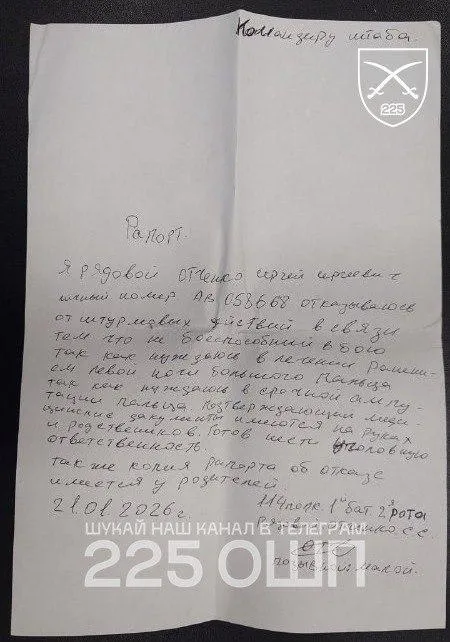 Командиру штаба.
225
Рапорт.
Я рядовой Отченко Сергей Сергеевич
личный номер АВ 058668 отказываюсь
от штурмовых действий в связи
тем что не боеспособный в бою
так как нуждаюсь в лечении Ранени-
ем левой ноги большого Пальца
так как нуждаюсь в срочной ампу-
тации пальца Подтверждающий меди-
цинские документы имеются на руках
и родственников. Готов нести уголовную
ответственность.
также копия рапорта об отказе
имеется у родителей.
21.01.2026г.
114 полк. 1й бат 2я рота
С.С.
позывной
ШУКАЙ НАШ КАНАЛ В ТЕЛЕГРАМ
225 ОШП